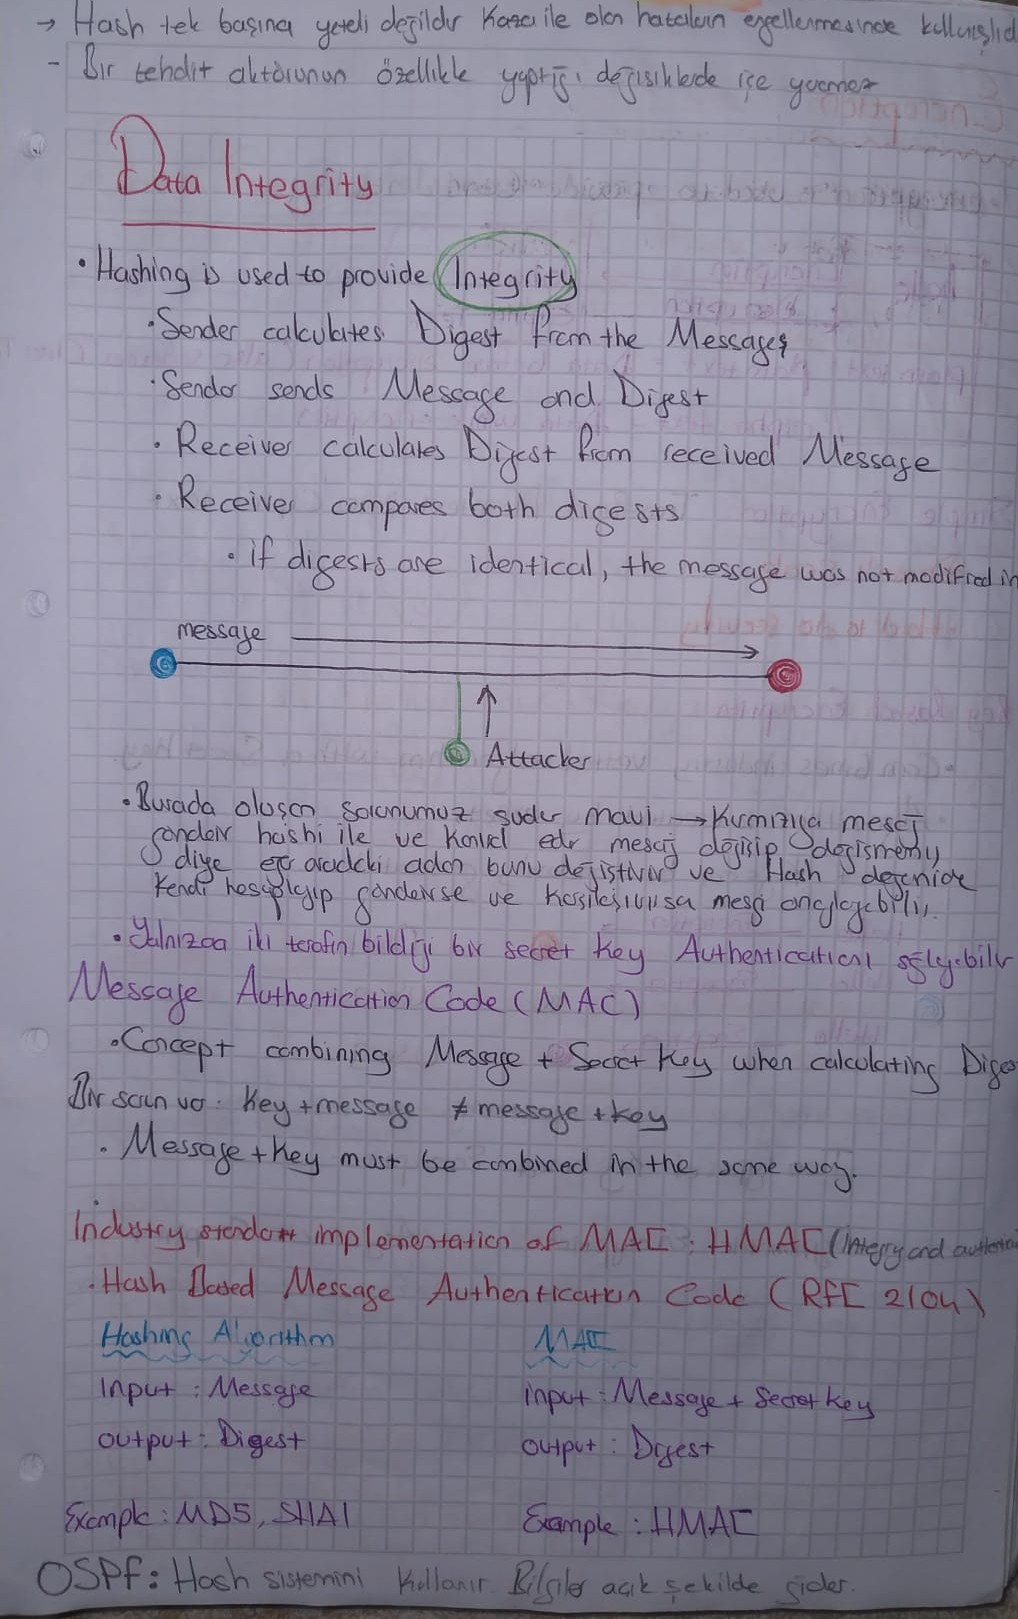 → Hash tek başına yeterli değildir Kaza ile olan hataların engellenmesinde kullanışlıd
- Bir tehdit aktörünün özellikle yaptığı değişiklerde işe yaramaz
Data Integrity
• Hashing is used to provide Integrity
• Sender calculates Digest from the Messages
• Sender sends Message and Digest
• Receiver calculates Digest from received Message
• Receiver compares both digests
• if digests are identical, the message was not modified in
message
Attacker
• Burada oluşan sorunumuz şudur mavi → Kırmızıya mesaj
gönderir hashi ile ve kontrol eder mesaj değişip değişmemiş
diye eğer aradaki adam bunu değiştirir ve Hash değeride
kendi hesaplayıp gönderirse ve karşılaşırsa mesajı onaylayabilir.
• Yalnızca iki tarafın bildiği bir secret key Authentication sağlayabilir
Message Authentication Code (MAC)
• Concept combining Message + Secret Key when calculating Dige
Bir sorun var: Key + message ≠ message + key
• Message + Key must be combined in the same way.
Industry standart implementation of MAC : HMAC (integry and authentic
• Hash Based Message Authentication Code (RFC 2104)
Hashing Algorithm MAC
Input : Message input : Message + Secret Key
output : Digest output : Digest
Example : MD5, SHA1 Example : HMAC
OSPF : Hash sistemini kullanır Bilgiler açık şekilde gider.